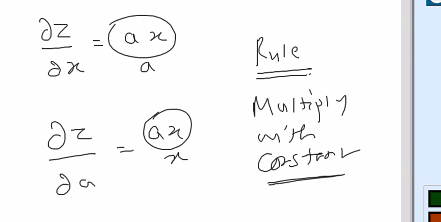 ∂z/∂x = ax
a
∂z/∂a = ax
x
Rule
Multiply
with
constant